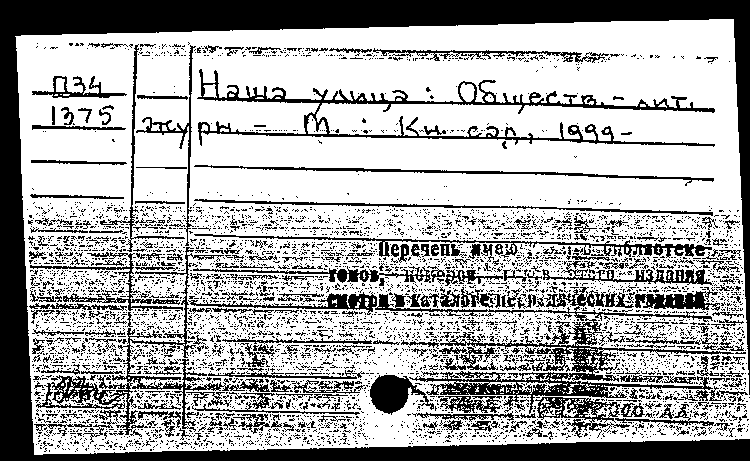 П34 Наша улица : Обществ.- лит.
1375 журн. - М. : Кн. сад, 1999-
Перечень в библиотеке
томов, номеров, этого издания
смотри в каталоге периодических изданий